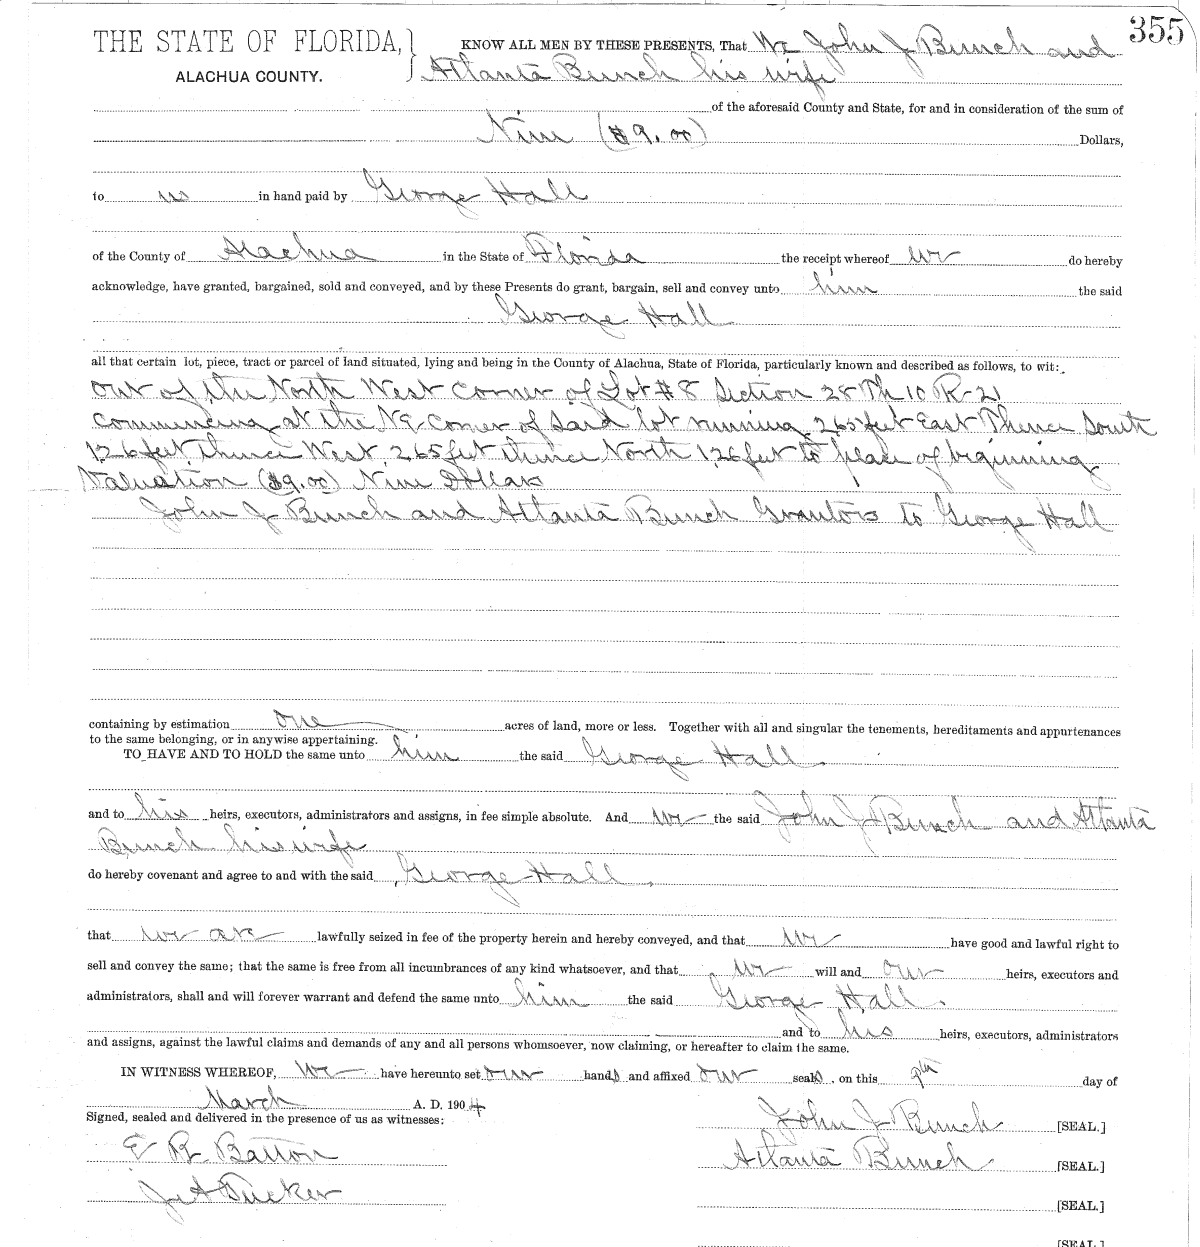 355
THE STATE OF FLORIDA, } KNOW ALL MEN BY THESE PRESENTS, That We John J Bunch and
ALACHUA COUNTY. Atlanta Bunch his wife
of the aforesaid County and State, for and in consideration of the sum of
Nine ($9.00) Dollars,
to us in hand paid by George Hall
of the County of Alachua in the State of Florida the receipt whereof we do hereby
acknowledge, have granted, bargained, sold and conveyed, and by these Presents do grant, bargain, sell and convey unto him the said
George Hall
all that certain lot, piece, tract or parcel of land situated, lying and being in the County of Alachua, State of Florida, particularly known and described as follows, to wit:
Out of the North West Corner of Lot #8 Section 28 Th 10 R-21
Commencing at the Corner of Said lot running 265 feet East Thence South
126 feet thence West 265 feet thence North 126 feet to place of beginning
Valuation ($9.00) Nine Dollars
John J Bunch and Atlanta Bunch Grantors to George Hall
containing by estimation one acres of land, more or less. Together with all and singular the tenements, hereditaments and appurtenances
to the same belonging, or in anywise appertaining.
TO HAVE AND TO HOLD the same unto him the said George Hall.
and to his heirs, executors, administrators and assigns, in fee simple absolute. And we the said John J Bunch and Atlanta
Bunch his wife
do hereby covenant and agree to and with the said George Hall,
that we are lawfully seized in fee of the property herein and hereby conveyed, and that we have good and lawful right to
sell and convey the same; that the same is free from all incumbrances of any kind whatsoever, and that we will and our heirs, executors and
administrators, shall and will forever warrant and defend the same unto him the said George Hall.
and to his heirs, executors, administrators
and assigns, against the lawful claims and demands of any and all persons whomsoever, now claiming, or hereafter to claim the same.
IN WITNESS WHEREOF, we have hereunto set our hands and affixed our seals on this 9th day of
March A. D. 1904
Signed, sealed and delivered in the presence of us as witnesses:
John J Bunch [SEAL.]
E R Batton
Atlanta Bunch [SEAL.]
J A Tucker
[SEAL.]
[SEAL.]